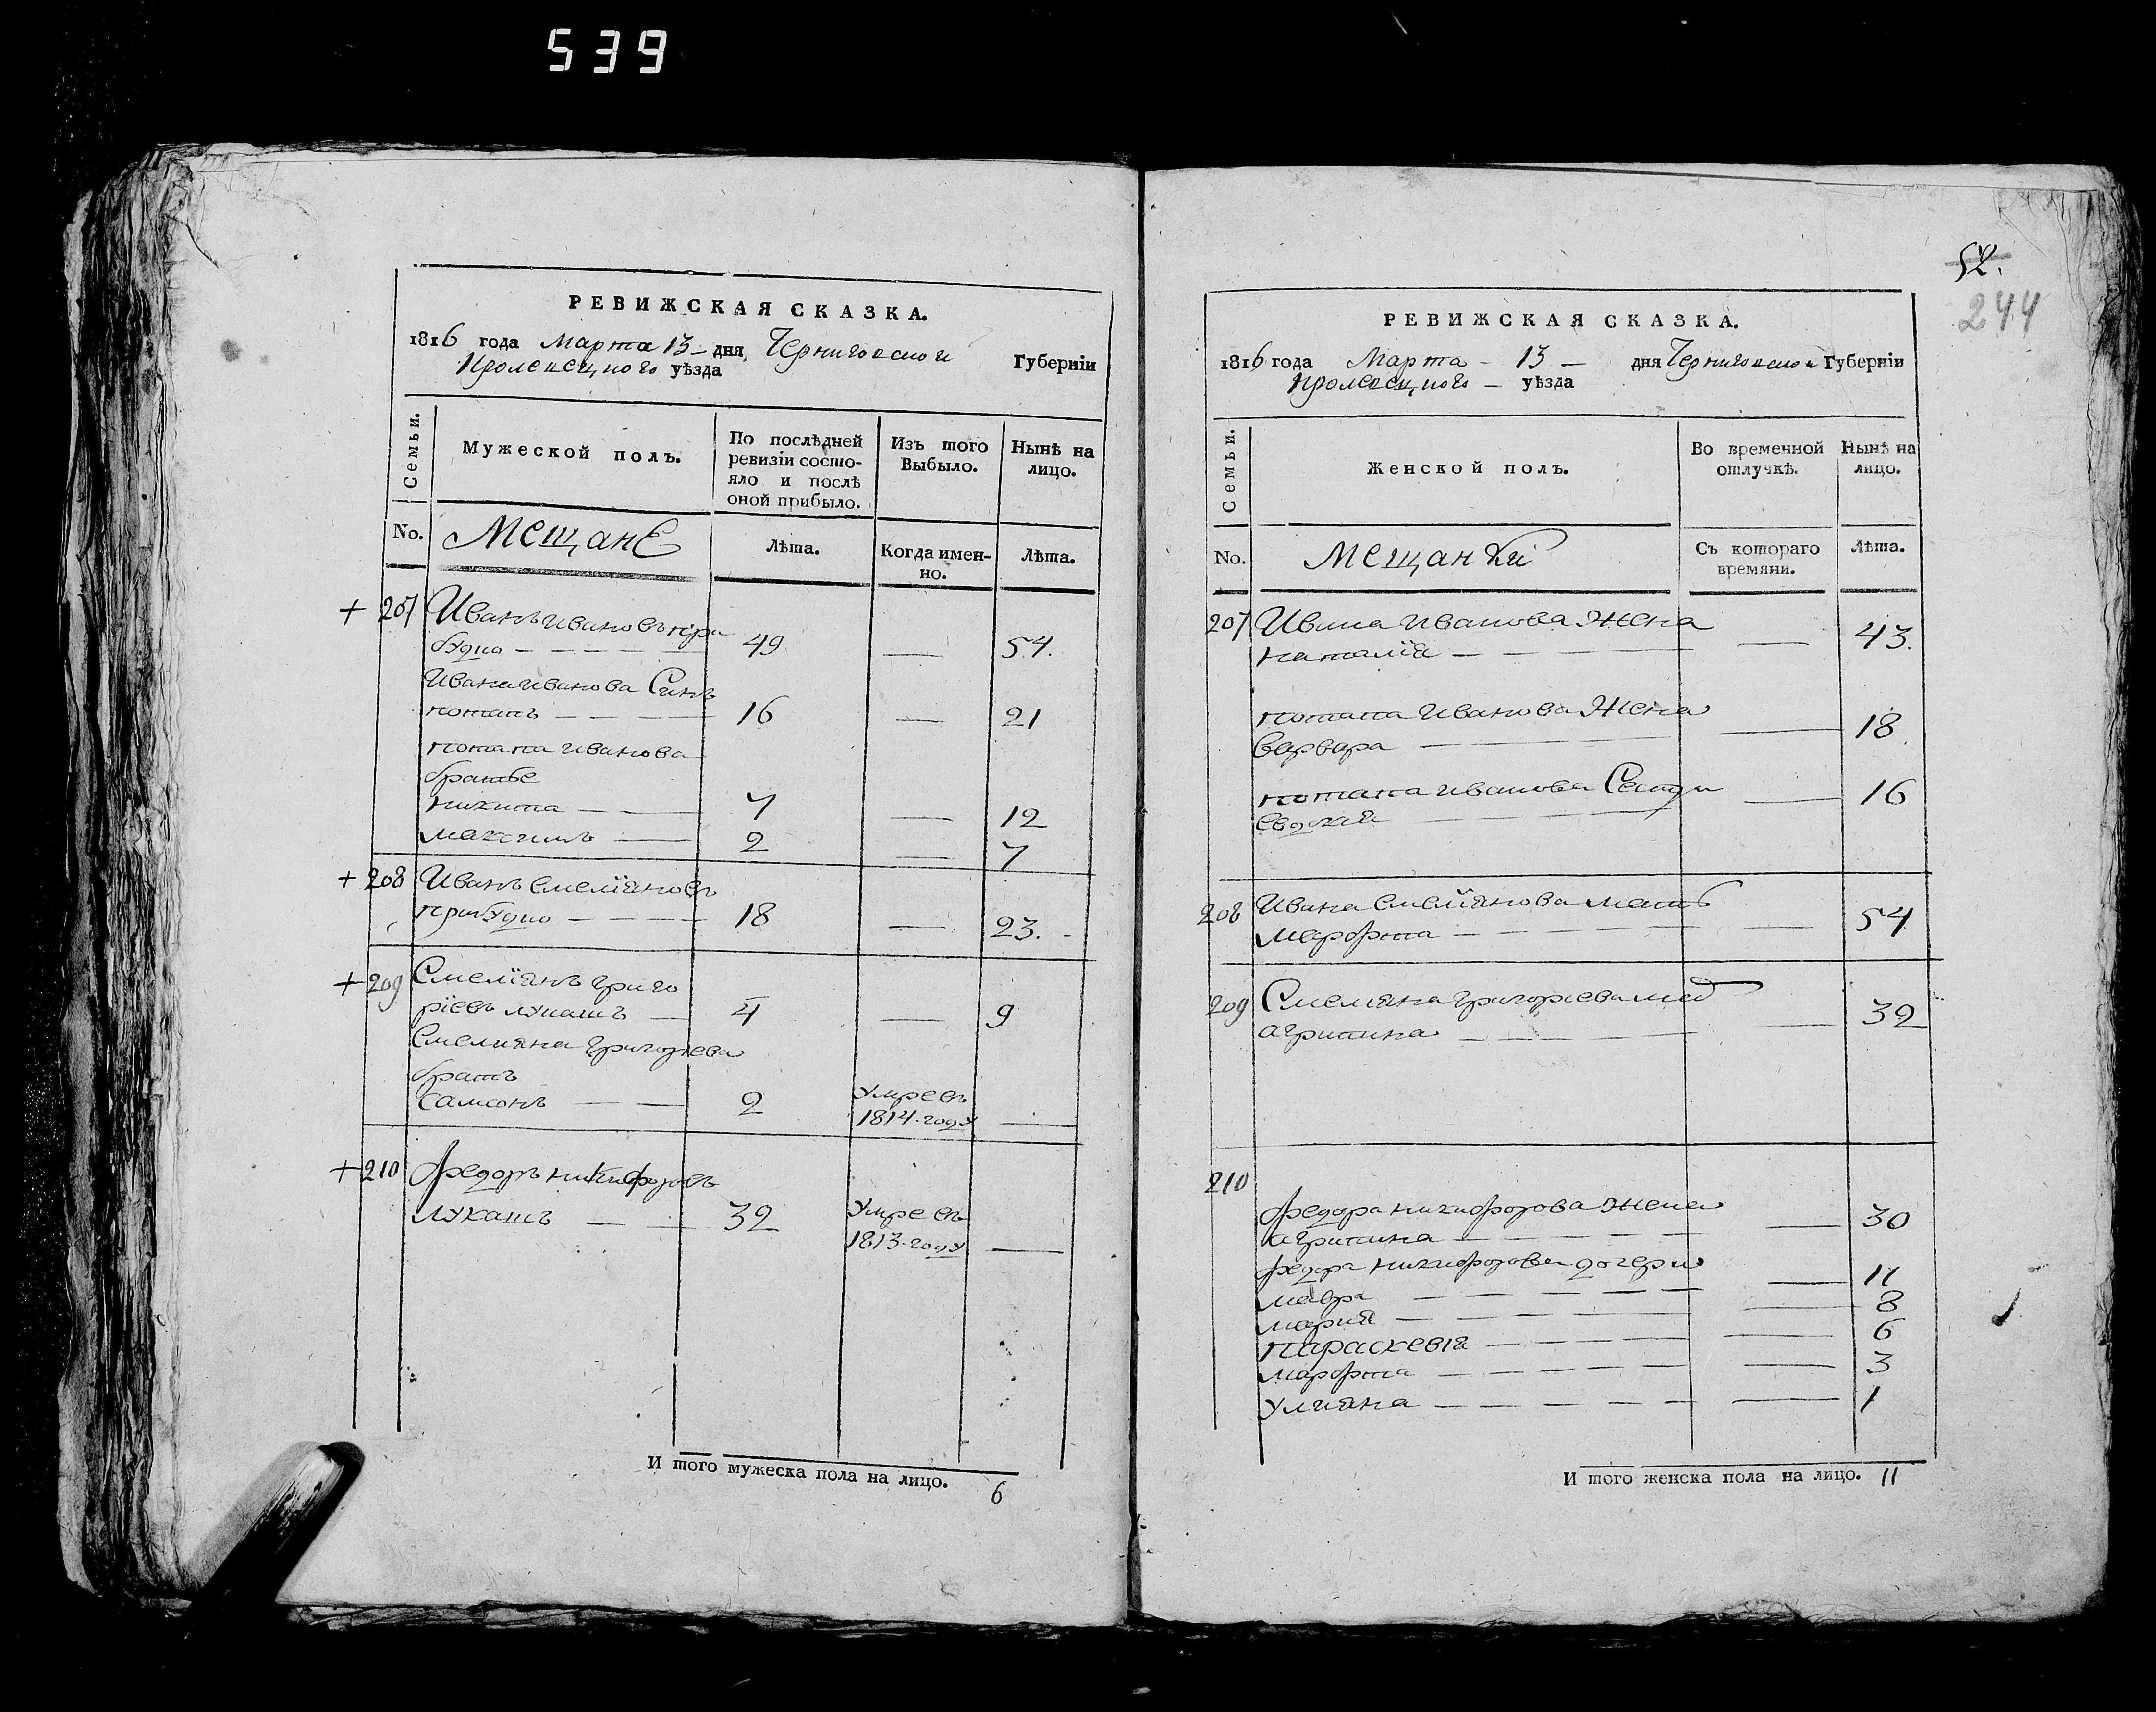 539
РЕВИЖСКАЯ СКАЗКА.
1816 года Марта 13 – дня, Черниговской Губерніи
Кролевецкого уѣзда
Семьи.
Мужеской полъ.
По послѣдней ревизіи состояло и послѣ оной прибыло.
Изъ того Выбыло.
Нынѣ на лицо.
No.
Мещане
Лѣта.
Когда именно.
Лѣта.
+ 207 Иванъ Ивановъ при
будко — 49 — 54.
Ивана Иванова Синъ
потапъ — 16 — 21
потапа Иванова
братье
никита — 7 — 12
максимъ — 2 — 7
+ 208 Иванъ Емеліяновъ
прибудко — 18 — 23.
+ 209 Емеліянъ Григо
ріевъ лукашъ — 4 — 9
Емелияна Григориева
братъ
Самсонъ — 2 Умревъ
1814. году —
+ 210 Федоръ никифоровъ
лукашъ — 32 Умревъ
1813. году —
И того мужеска пола на лицо. 6
52.
244
РЕВИЖСКАЯ СКАЗКА.
1816 года Марта – 13 – дня Черниговской Губерніи
Кролевецкого – уѣзда
Семьи.
Женской полъ.
Во временной отлучкѣ.
Нынѣ на лицо.
No.
Мещанки
Съ котораго времяни.
Лѣта.
207 Ивана Иванова Жена
наталія — 43.
потапа Иванова Жена
варвара — 18
потапа Иванова Сестра
— 16
208 Ивана Емеліянова мать
марфта — 54
209 Емелияна Григориева мат
агрипина — 32
210
Федора никифорова Жена
агрипина — 30
Федора никифорова дочери
мавра — 11
мария — 8
параскевія — 6
марфта — 3
Улияна — 1
И того женска пола на лицо. 11